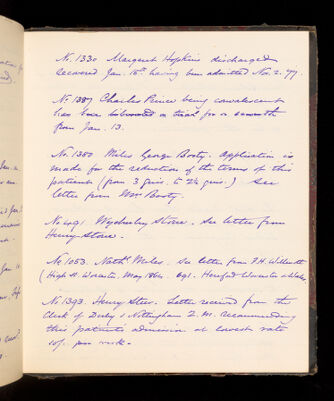 No. 1330 Margaret Hopkins discharged
recovered Jan. 15th. having been admitted Nov. 2. 77.
No 1387 Charles Prince being convalescent
has been liberated on trial for a month
from Jan. 13.
No. 1380 Miles George Booty. Application is
made for the reduction of the terms of this
patient (from 3 guis. to 2½ guis.) See
letter from Mrs Booty.
Wycherley Stowe. See letter from
Henry Stowe.
No 1053. Nathl Miles. See letter from F. H.
(High St. Worcester, May 1864. 691. Hereford Worcester
No. 1393. Henry Letter received from the
Clerk of Derby & Nottingham recommending
this patients admission at lowest rate
10/. per week.